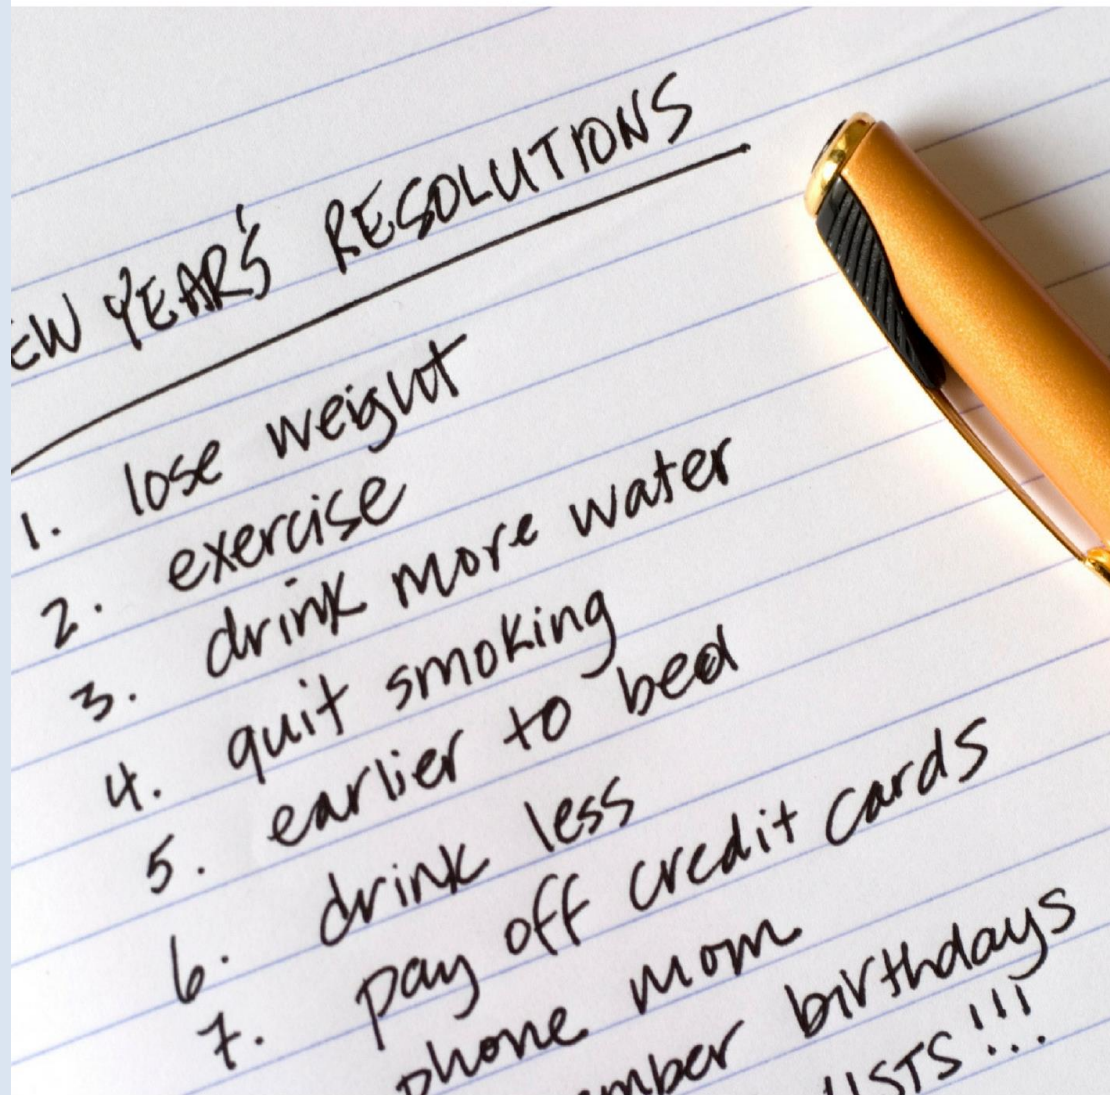 EW YEAR'S RESOLUTIONS
1. lose weight
2. exercise
3. drink more water
4. quit smoking
5. earlier to bed
6. drink less
7. pay off credit cards
phone mom
mber birthdays
LISTS!!!